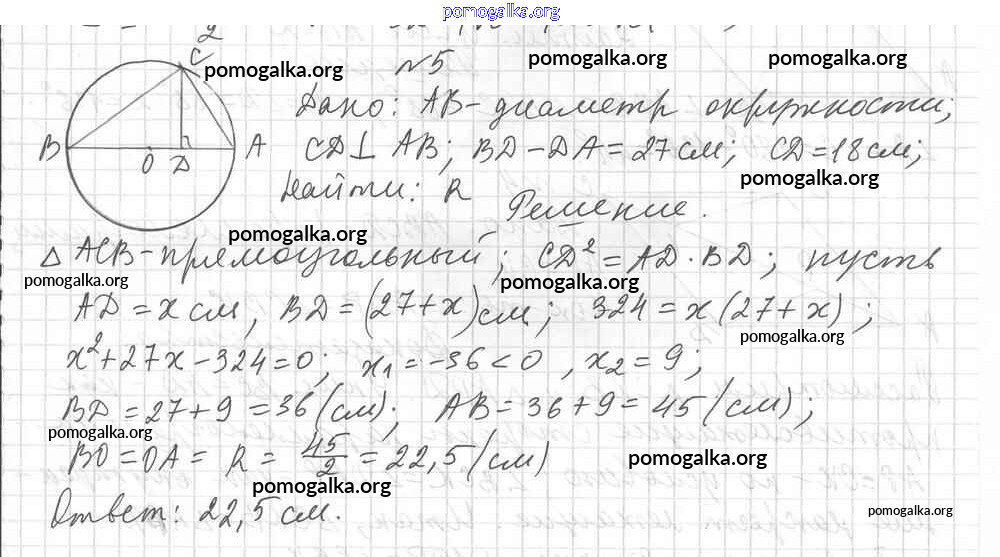 pomogalka.org
C pomogalka.org №5 pomogalka.org pomogalka.org
Дано: AB - диаметр окружности;
B O D A CD⊥ AB; BD - DA = 27 см; CD = 18 см;
pomogalka.org
Найти: R
Решение.
pomogalka.org
△ ACB - прямоугольный; CD² = AD · BD; пусть
pomogalka.org pomogalka.org
AD = x см, BD = (27 + x) см; 324 = x (27 + x);
pomogalka.org
x² + 27x - 324 = 0; x₁ = -36 < 0, x₂ = 9;
BD = 27 + 9 = 36 (см); AB = 36 + 9 = 45 (см);
pomogalka.org
BO = OA = R = 45/2 = 22,5 (см)
pomogalka.org
pomogalka.org
Ответ: 22,5 см.
pomogalka.org